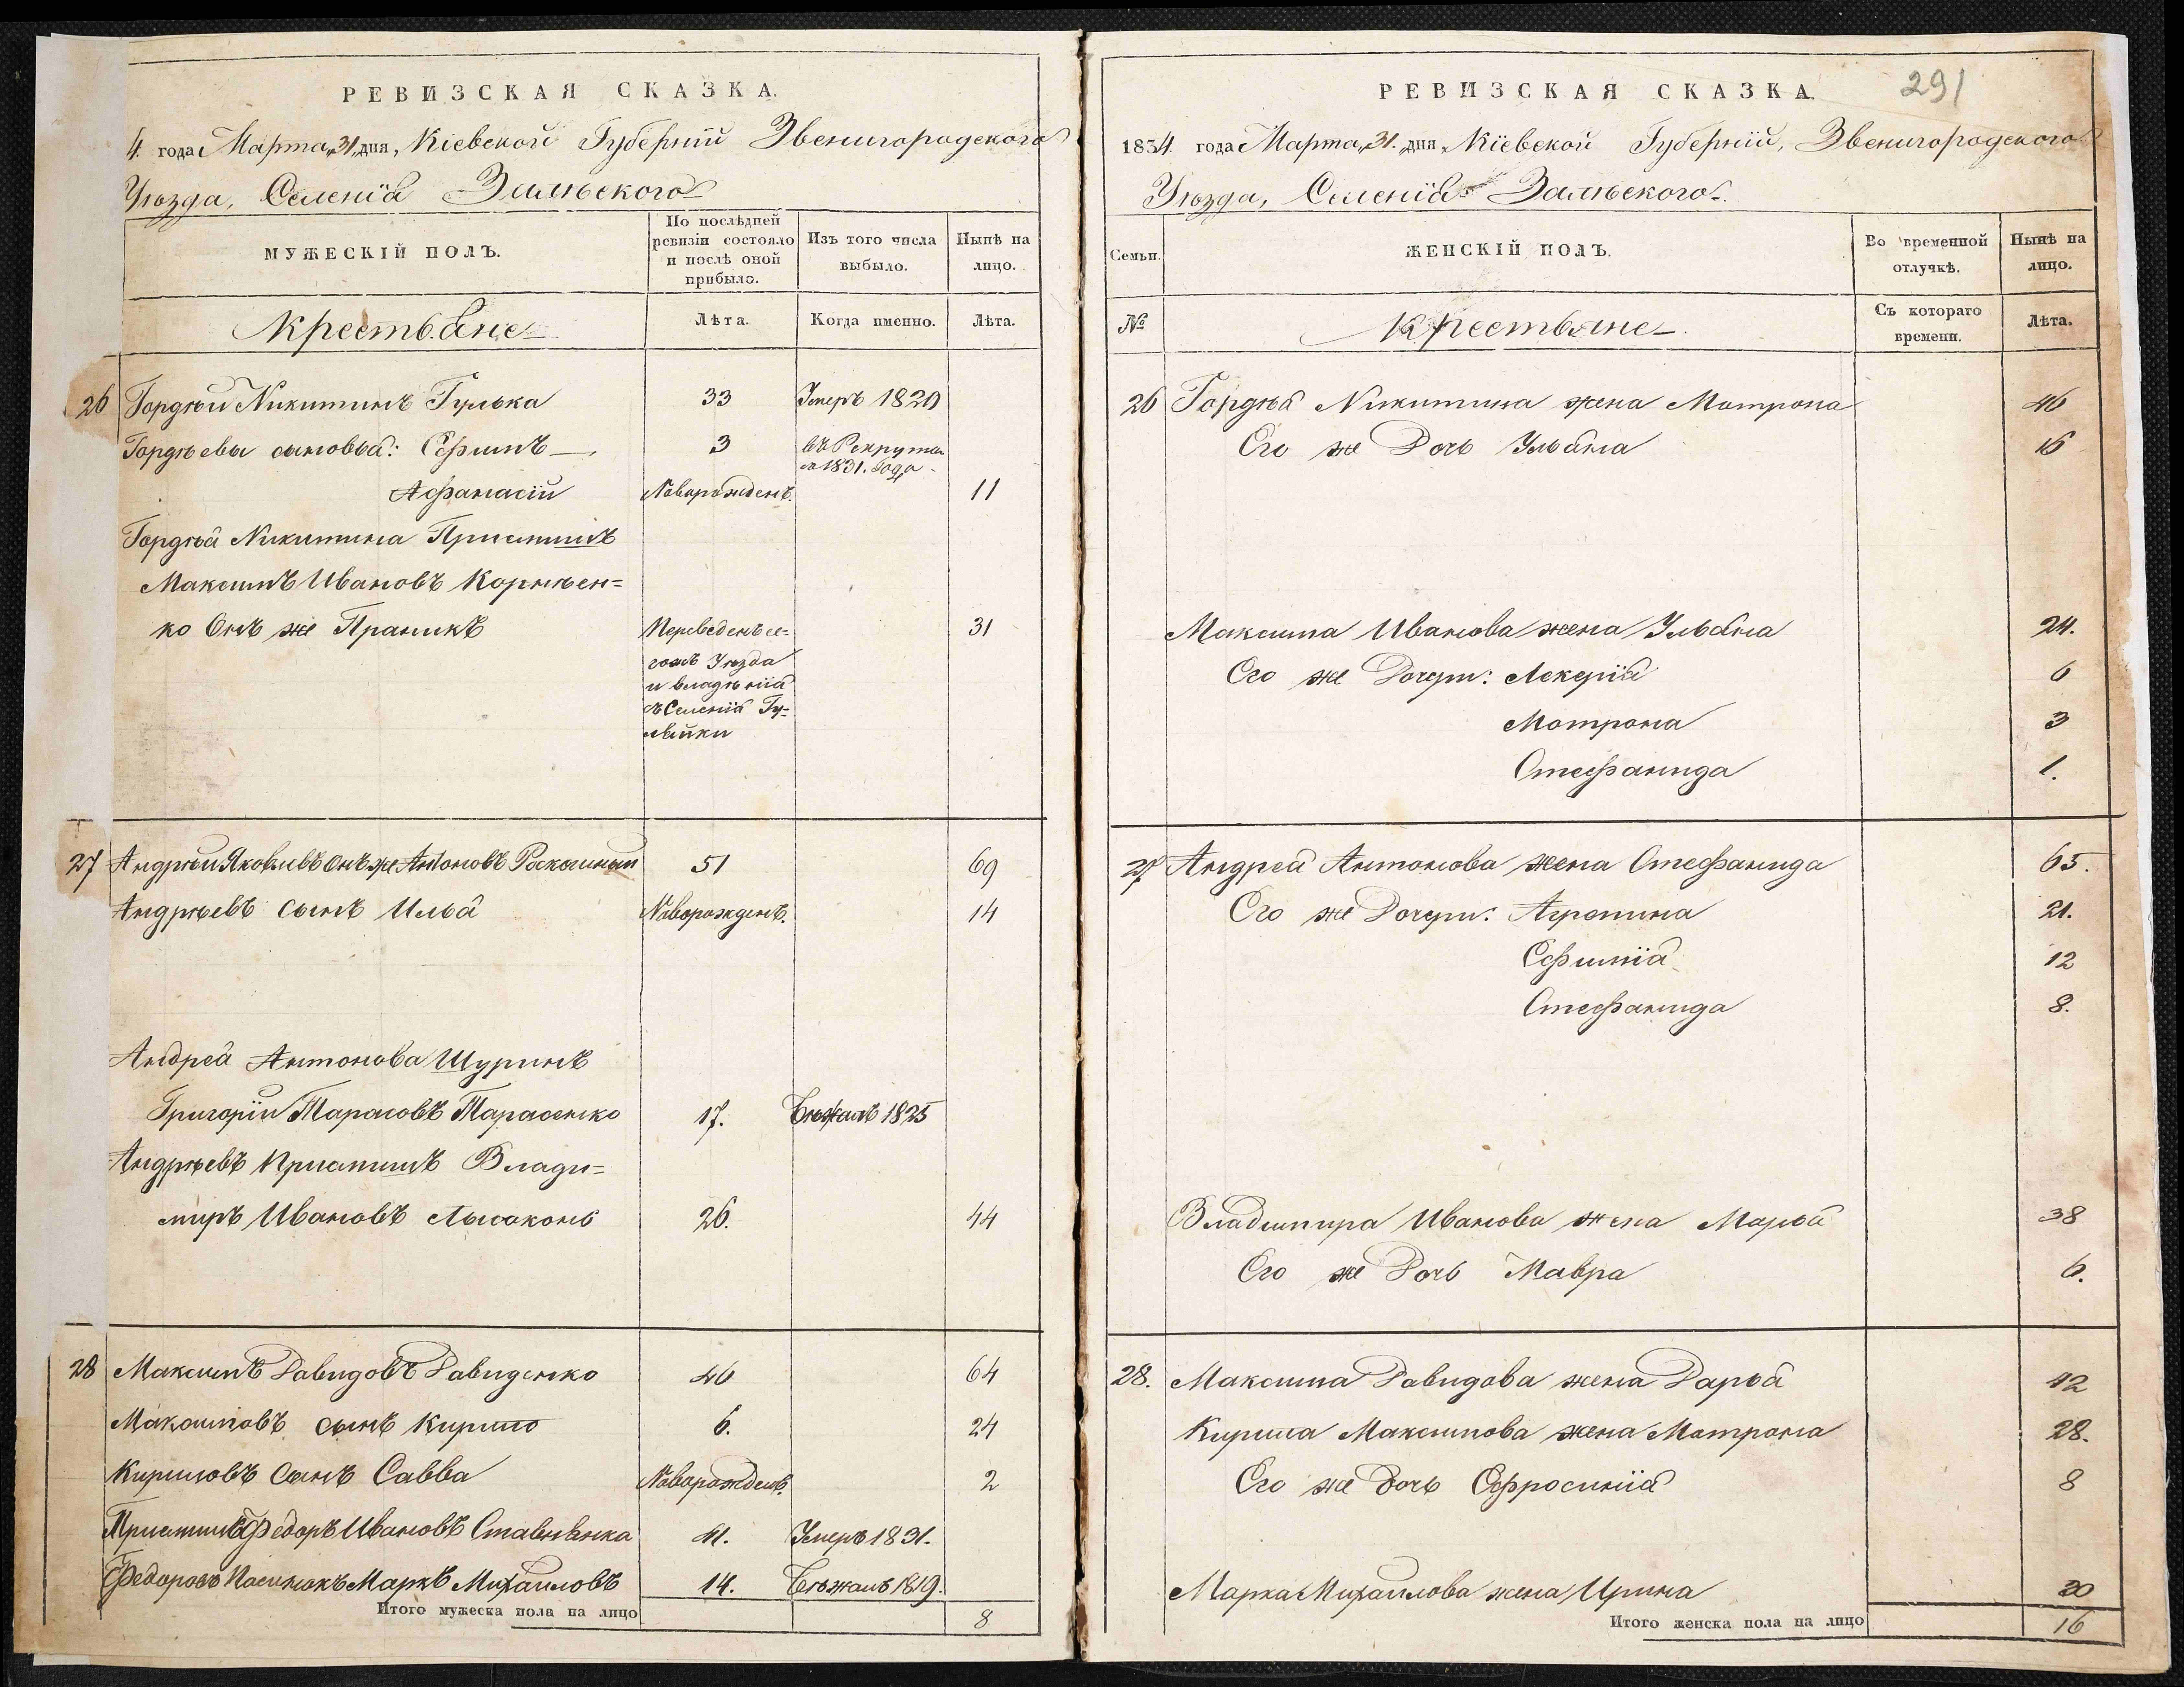 РЕВИЗСКАЯ СКАЗКА.
4. года Марта „31„ дня, Кіевской Губерніи Звенигородского
Уѣзда, Селенія Залѣского
МУЖЕСКІЙ ПОЛЪ.
По послѣдней ревизіи состояло и послѣ оной прибыло.
Изъ того числа выбыло.
Нынѣ на лицо.
Крестьяне
Лѣта.
Когда именно.
Лѣта.
26 Гордѣй Никитинъ Гулька 33 Умеръ 1829
Гордѣевы сыновья: Ефимъ 3 въ Рекруты
1831. года
Афанасій Новорожденъ. 11
Гордѣя Никитина Пріимышъ
Максимъ Ивановъ Корнѣен=
ко Онъ же Праникъ Переведенъ се= 31
гожъ Уѣзда
и владѣнія
съ Селенія Гу=
27 Андрѣй Яковлевъ онъ же Антоновъ 51 69
Андрѣевъ сынъ Илья Новорожденъ. 14
Андрея Антонова Шуринъ
Григорій Тарасовъ Тарасенко 17. Бѣжалъ 1825
Андрѣевъ Пріимышъ Влади=
миръ Ивановъ Лысоконь 26. 44
28 Максимъ Давидовъ Давиденко 46 64
Максимовъ сынъ Кирило 6. 24
Кириловъ сынъ Савва Новорожденъ. 2
Пріимышъ Федоръ Ивановъ 41. Умеръ 1831.
Федоровъ Пасынокъ Маркъ Михайловъ 14. Бѣжалъ 1819.
Итого мужеска пола на лицо 8
291
РЕВИЗСКАЯ СКАЗКА.
1834. года Марта „31. дня „Кіевской Губерніи, Звенигородского
Уѣзда, Селенія Залѣского.
Семьи.
ЖЕНСКІЙ ПОЛЪ.
Во временной отлучкѣ.
Нынѣ на лицо.
№
Крестьяне
Съ котораго времени.
Лѣта.
26 Гордѣя Никитина жена Мотрона 46
Его же Дочь Ульяна 16
Максима Иванова жена Ульяна 24.
Его же Дочери: Лукерія 6
Мотрона 3
Стефанида 1.
27 Андрея Антонова жена Стефанида 65.
Его же Дочери: Агрепина 21.
Ефимія 12
Стефанида 8.
Владимира Иванова жена Марья 38
Его же Дочь Мавра 6.
28. Максима Давидова жена Дарья 42
Кирила Максимова жена Мотрона 28.
Его же Дочь Ефросинія 8
Марка Михайлова жена Ирина 30
Итого женска пола на лицо 16